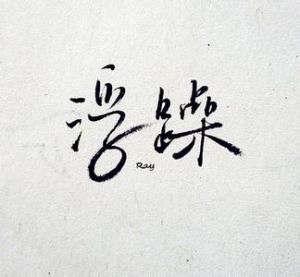 浮躁
Ray